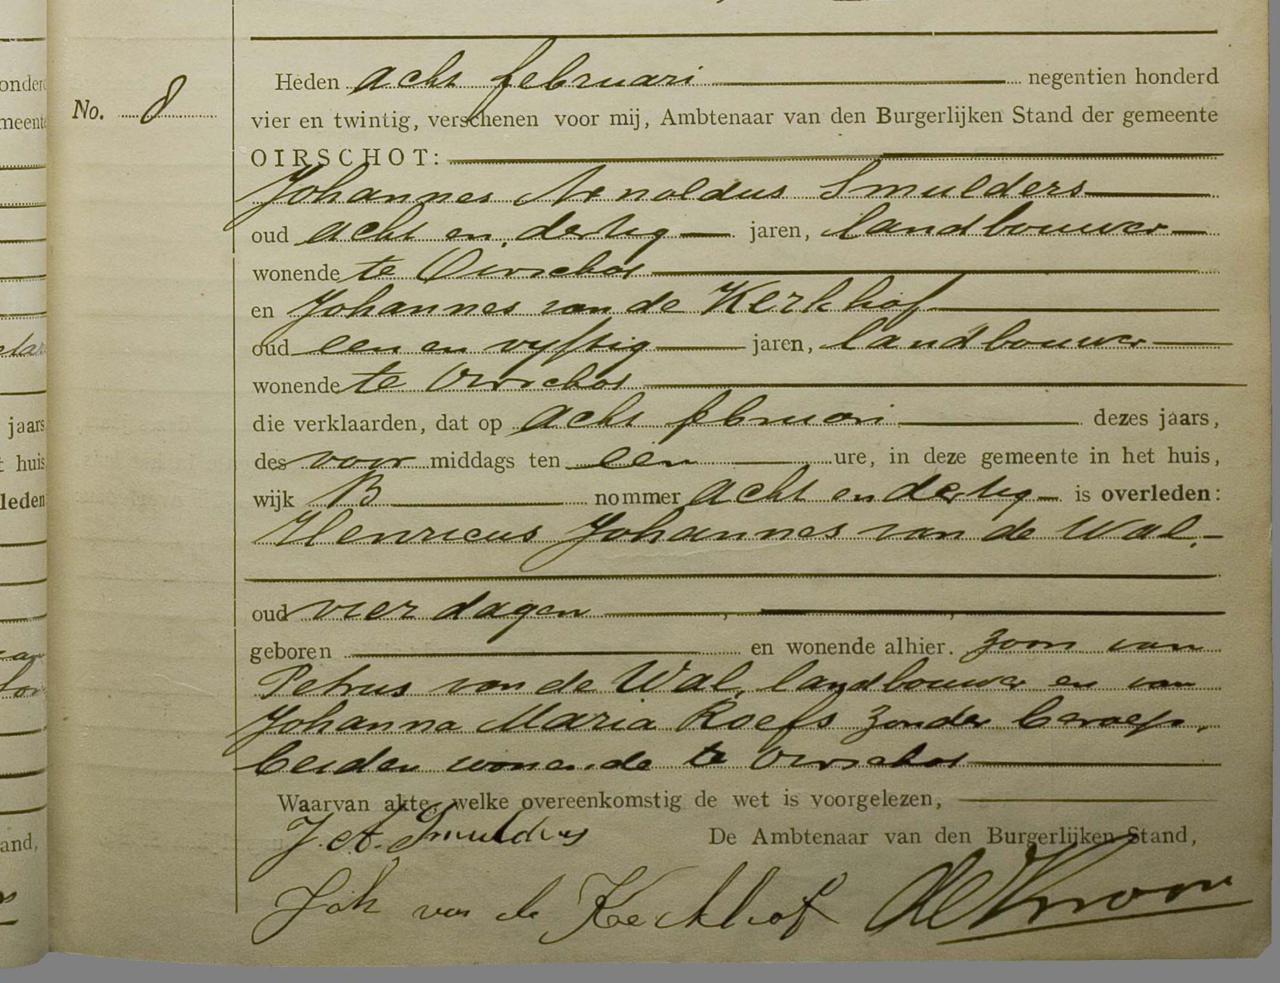 No. 8
Heden acht februari negentien honderd
vier en twintig, verschenen voor mij, Ambtenaar van den Burgerlijken Stand der gemeente
OIRSCHOT:
Johannes Arnoldus Smulders
oud acht en dertig jaren, landbouwer
wonende te Oirschot
en Johannes van de Kerkhof
oud een en vyftig jaren, landbouwer
wonende te Oirschot
die verklaarden, dat op acht februari dezes jaars,
des voor middags ten een ure, in deze gemeente in het huis,
wijk B nommer acht en dertig is overleden:
Henricus Johannes van de Wal.
oud vier dagen
geboren en wonende alhier. zoon van
Petrus van de Wal, landbouwer en van
Johanna Maria Roefs zonder beroep,
beiden wonende te Oirschot
Waarvan akte, welke overeenkomstig de wet is voorgelezen,
J. A. Smulders De Ambtenaar van den Burgerlijken Stand,
Joh van de Kerkhof
jaars
huis
leden
and,